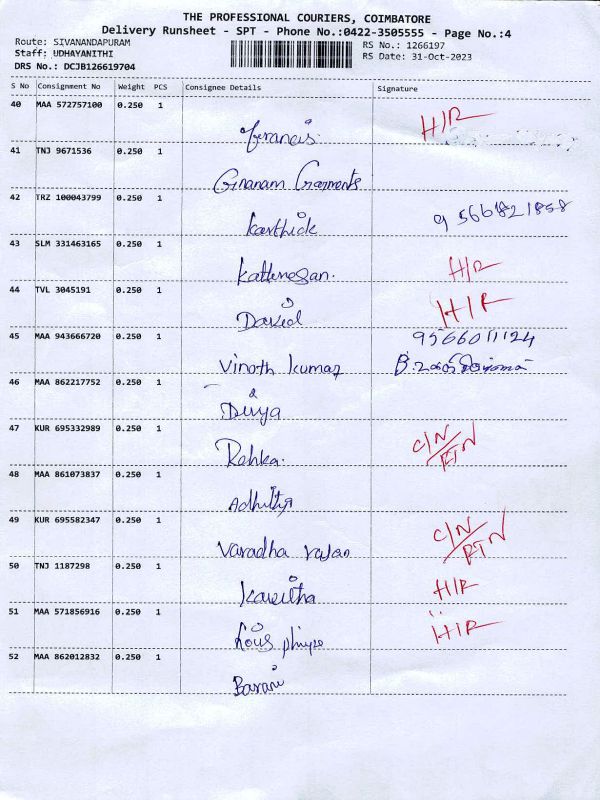 THE PROFESSIONAL COURIERS, COIMBATORE
Delivery Runsheet - SPT - Phone No.:0422-3505555 - Page No.:4
Route: SIVANANDAPURAM
Staff: UDHAYANITHI
DRS No.: DCJB126619704
RS No.: 1266197
RS Date: 31-Oct-2023
S No Consignment No Weight PCS Consignee Details Signature
40 MAA 572757100 0.250 1
Francis. H/R
41 TNJ 9671536 0.250 1
Gnanam Garments
42 TRZ 100043799 0.250 1
Karthick 9566821858
43 SLM 331463165 0.250 1
Kathiresan. H/R
44 TVL 3045191 0.250 1
David H/R
45 MAA 943666720 0.250 1 9566011124
Vinoth kumar
46 MAA 862217752 0.250 1
Divya
47 KUR 695332989 0.250 1
Rehka. C/N RTN
48 MAA 861073837 0.250 1
Adhithya
49 KUR 695582347 0.250 1
Varadha rajan C/N RTN
50 TNJ 1187298 0.250 1
Kavitha H/R
51 MAA 571856916 0.250 1
H/R
52 MAA 862012832 0.250 1
Barani